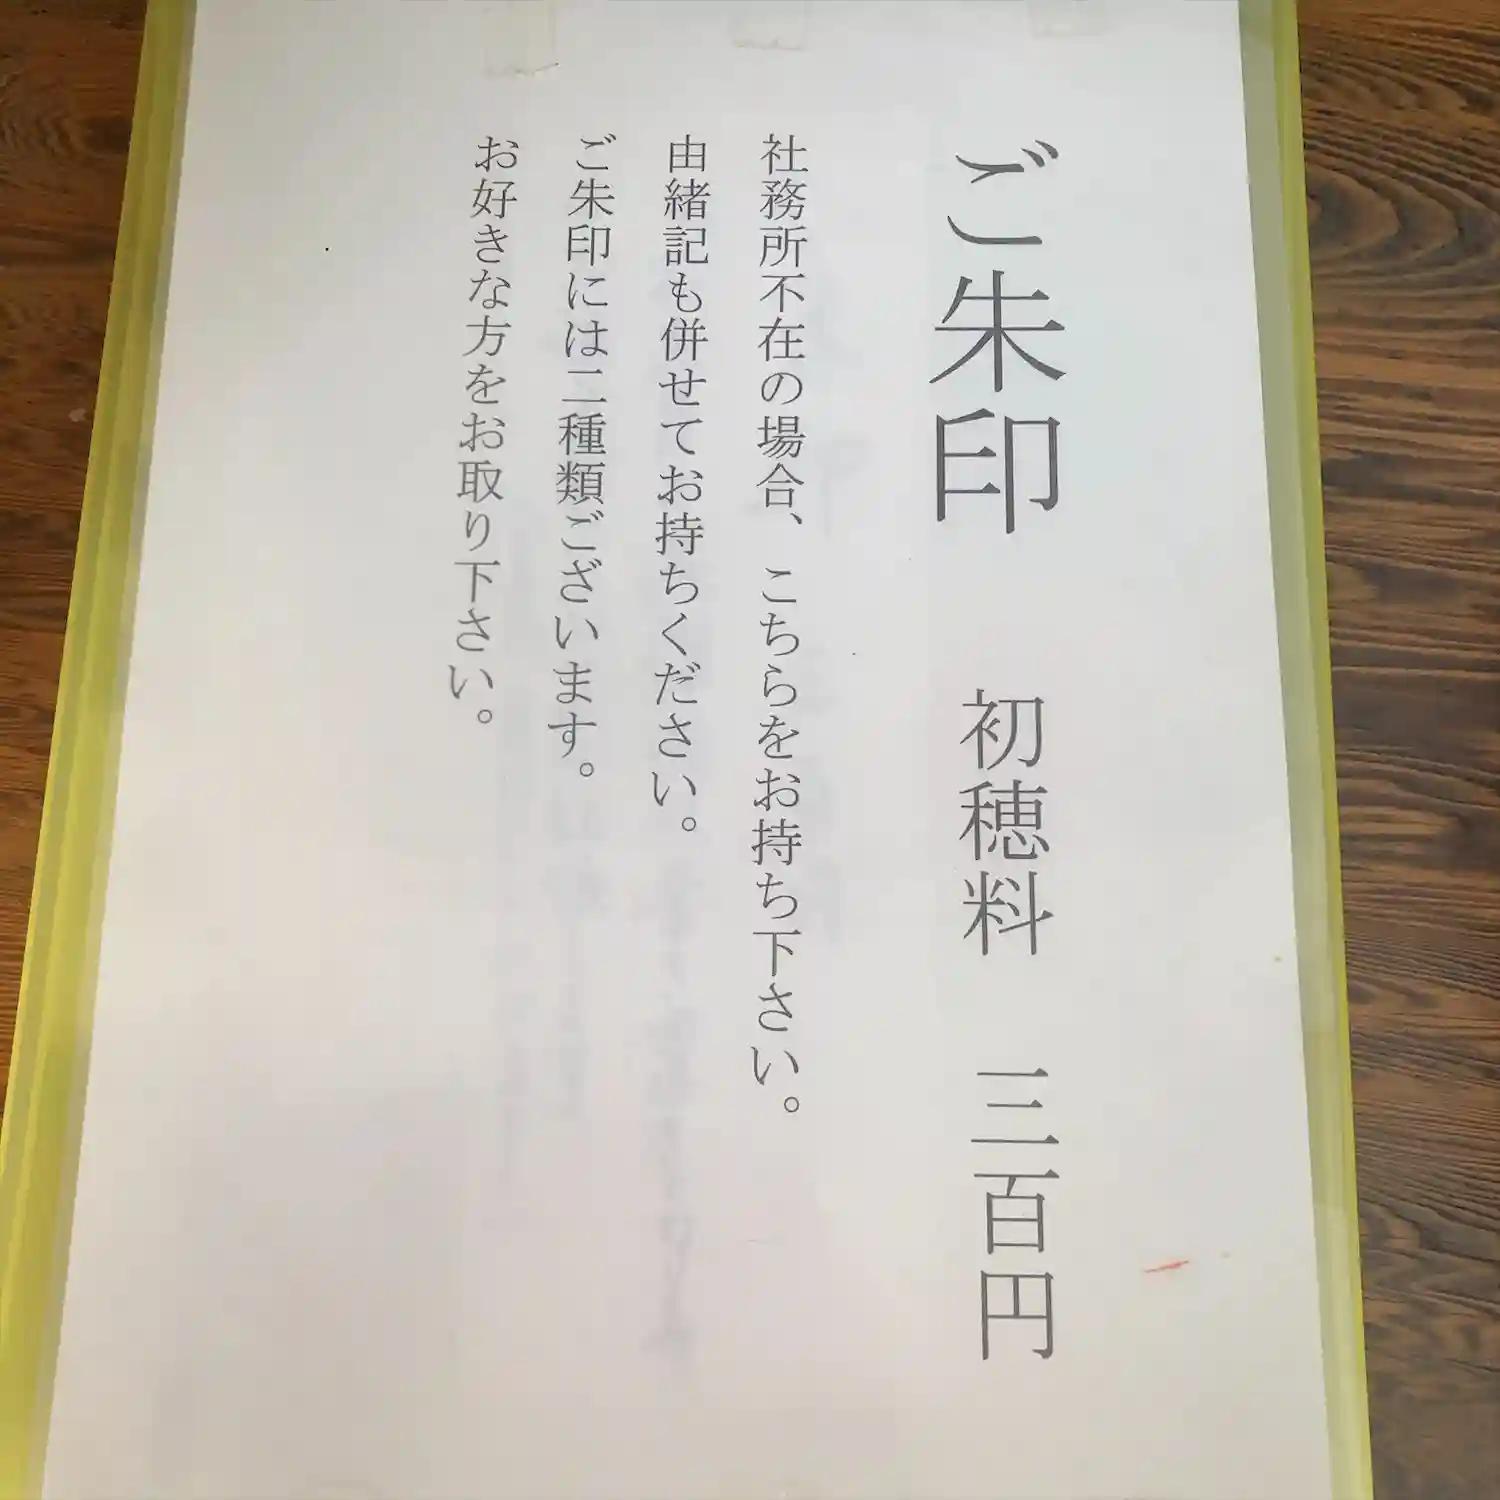 ご朱印 初穂料 三百円
社務所不在の場合、こちらをお持ち下さい。
由緒記も併せてお持ちください。
ご朱印には二種類ございます。
お好きな方をお取り下さい。